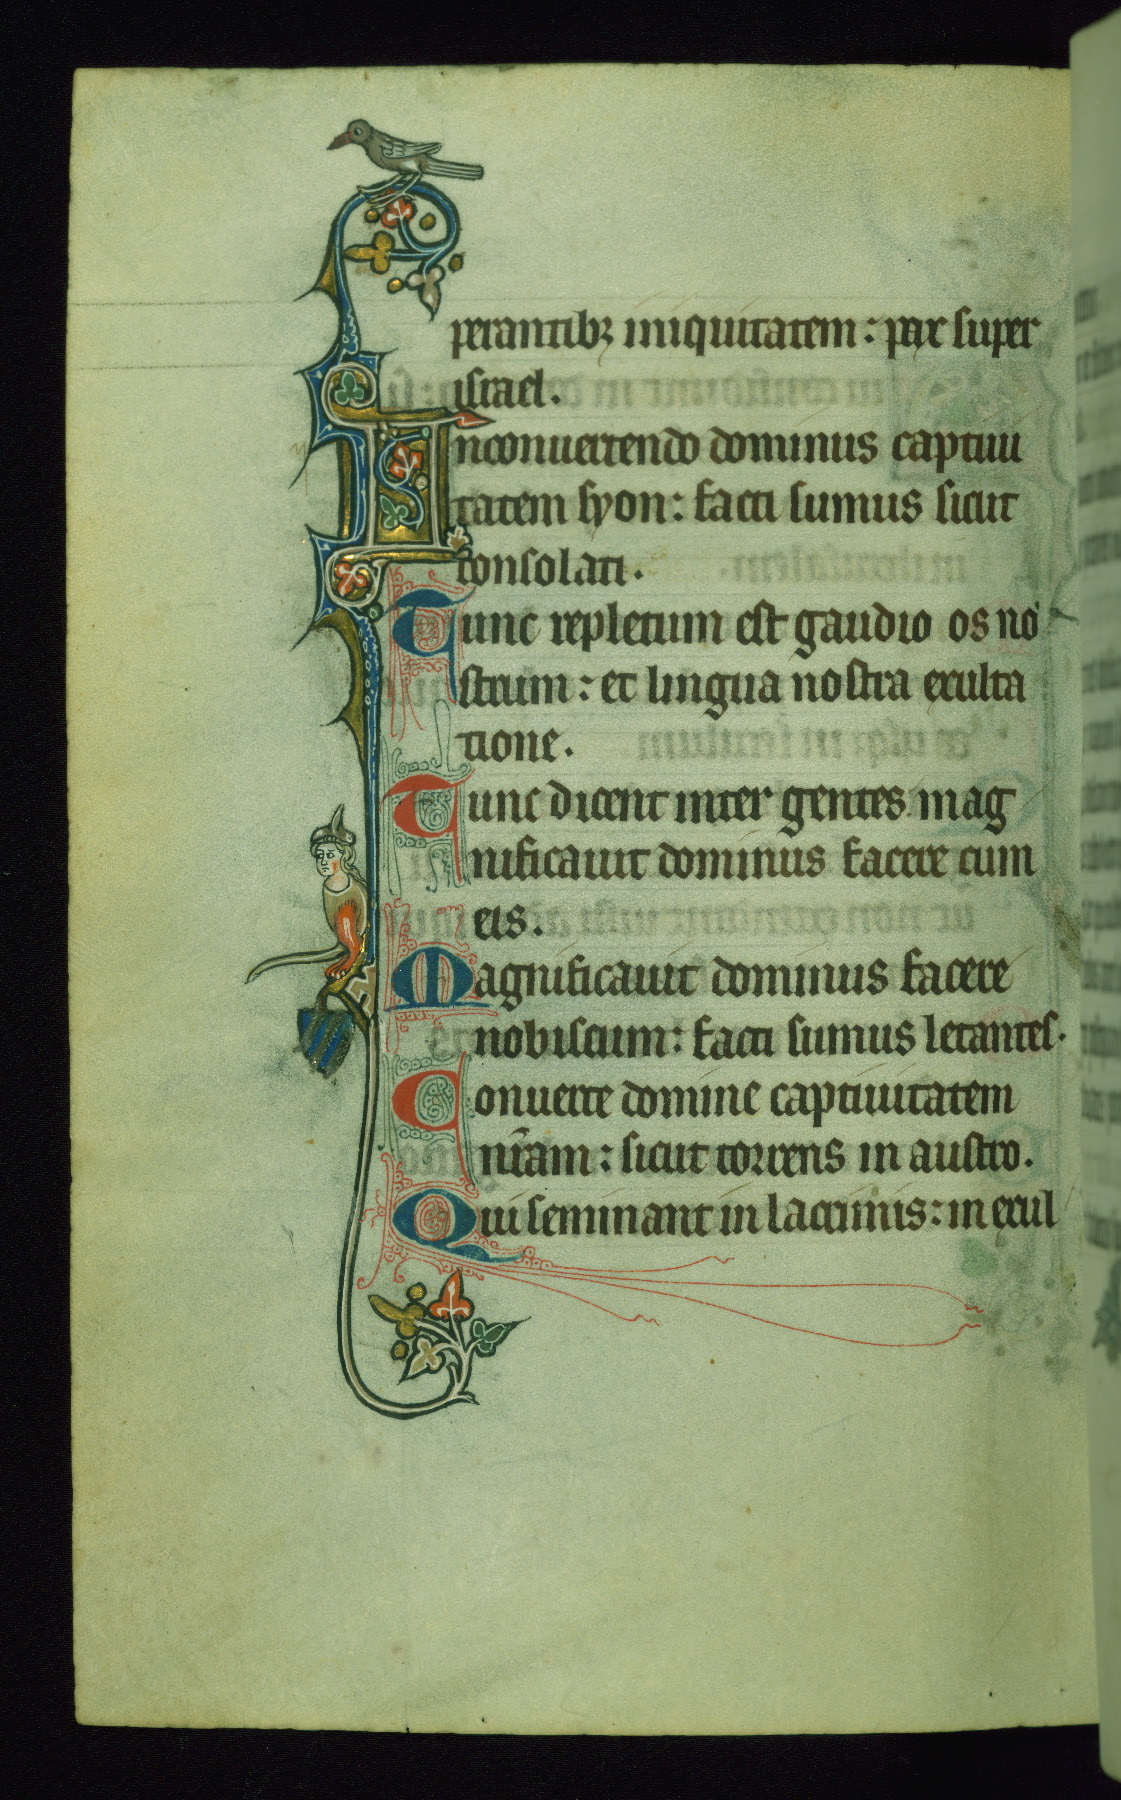 perantibꝫ iniquitatem : pax super
israel .
Inconuertendo dominus captiui
tatem syon : facti sumus sicut
consolati .
Tunc repletum est gaudio os no
strum : et lingua nostra exulta
tione .
Tunc dicent inter gentes mag
nificauit dominus facere cum
eis .
Magnificauit dominus facere
nobiscum : facti sumus letantes .
Conuerte domine captiuitatem
nr̄am : sicut torrens in austro .
Qui seminant in lacrimis : in exul